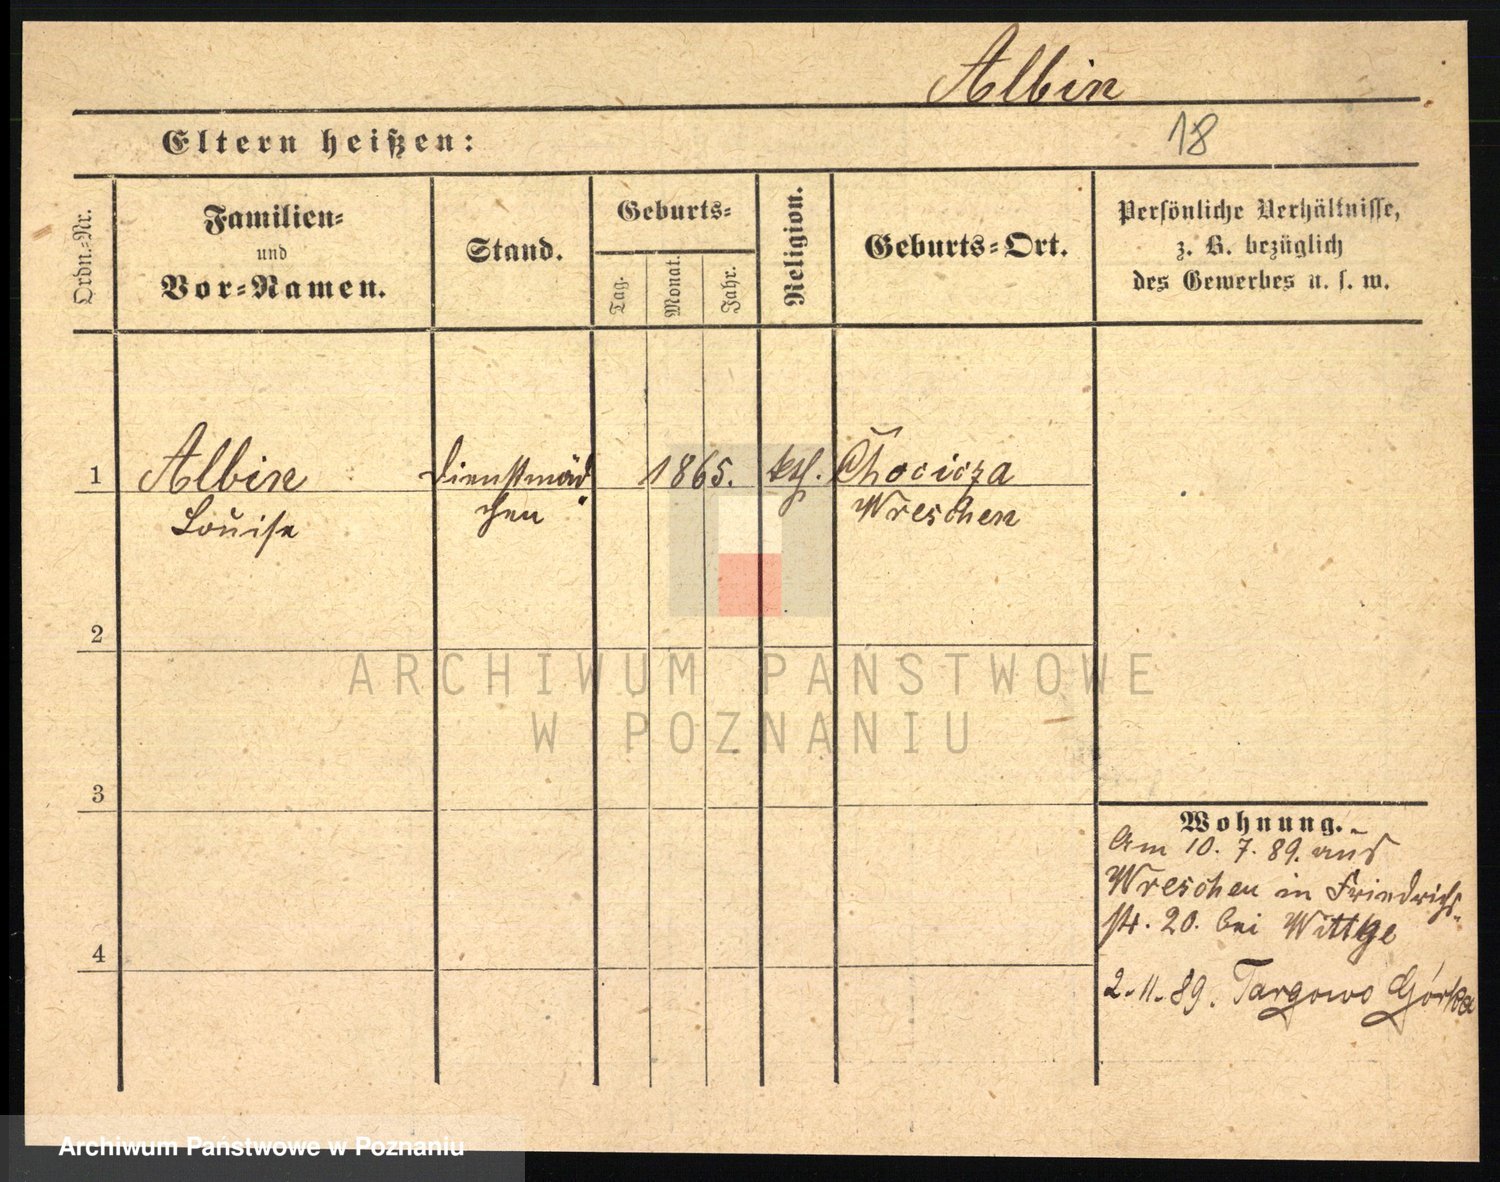 Albin
18
Eltern heißen:
Ordn.-Nr.
Familien-
und
Vor-Namen.
Stand.
Geburts-
Tag.
Monat.
Jahr.
Religion.
Geburts-Ort.
Persönliche Verhältnisse,
z. B. bezüglich
des Gewerbes u. s. w.
1
Albin
Louise
Dienstmäd
chen
1865.
kth.
Chocicza
Wreschen
2
3
4
Wohnung.
Am 10. 7. 89. aus
Wreschen in Friedrichs-
str. 20. bei Wittge
2.11.89. Targowo Górka
ARCHIWUM PAŃSTWOWE
W POZNANIU
Archiwum Państwowe w Poznaniu